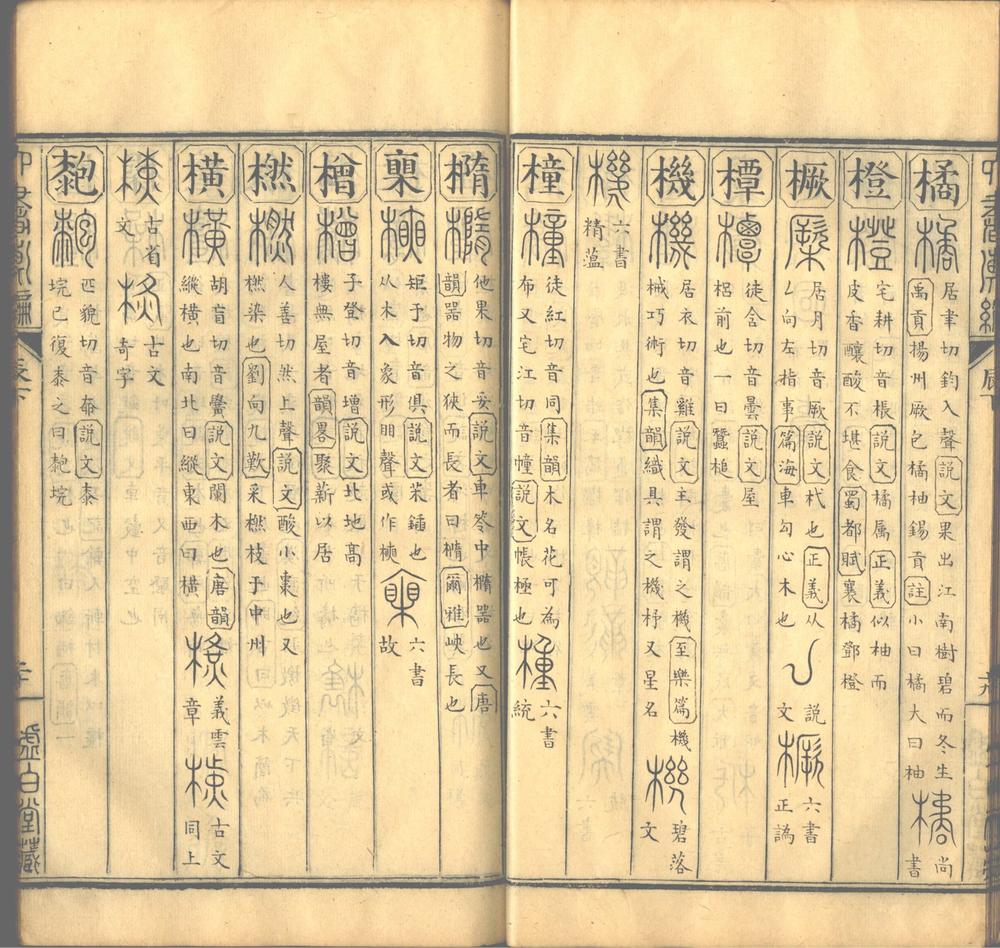 橘 橘 居聿切鈞入聲説文果出江南樹碧而冬生
禹貢揚州厥包橘柚錫貢註小曰橘大曰柚 橘 尚書
橙 橙 宅耕切音棖説文橘属正義似柚而
皮香釀酸不堪食蜀都賦襄橘鄧橙
橛 居月切音厥説文杙也正義从
乚向左指事篇海車勾心木也 説文 橛 六書正譌
橝 橝 徒含切音曇説文屋
梠前也一曰蠶槌
機 機 居衣切音雞説文主發謂之機至樂篇機
械巧術也集韻織具謂之機杼又星名 碧落文
六書
精薀
橦 橦 徒紅切音同集韻木名花可為
布又宅江切音幢説文帳極也 橦 六書統
橢 橢 他果切音妥説文車笭中橢器也又唐
韻器物之狹而長者曰橢爾雅嶞長也
矩于切音俱説文茱鍤也
从木入象形䀠聲或作 六書故
橧 橧 子登切音增説文北地高
樓無屋者韻畧聚薪以居
橪 橪 人善切然上聲説文酸小棗也又
橪染也劉向九歎采橪枝于中州
橫 橫 胡盲切音黌説文闌木也唐韻
縱橫也南北曰縱東西曰橫 義雲章 古文同上
古省文 古文奇字
匹貌切音奅説文桼
垸已復桼之曰 垸
虛白堂藏